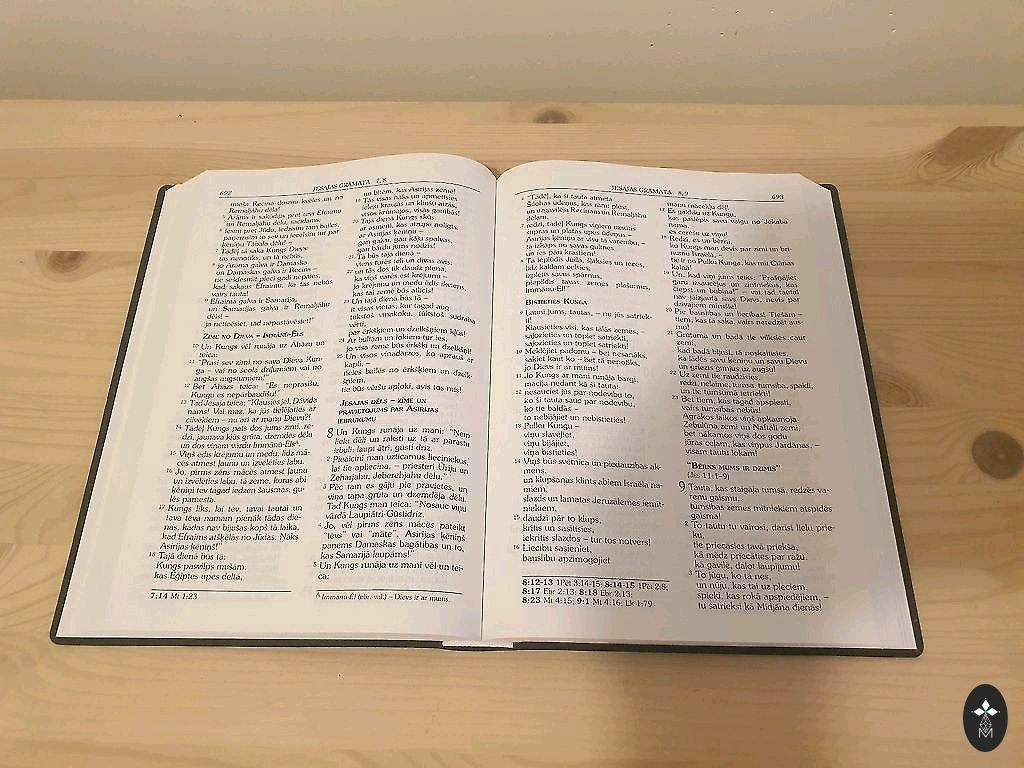 692
JESAJAS GRĀMATA 7, 8
nieša Recina dusmu kvēles un no
Remaljāhu dēla!
5 Arāms ir sakūdījis pret tevi Efraimu
un Remaljāhu dēlu, sacīdams:
6 iesim pret Jūdu, iedzīsim tam bailes,
paņemsim to sev un iecelsim tur par
ķēniņu Tābala dēlu! –
7 Tādēļ tā saka Kungs Dievs:
tas nenotiks, un tā nebūs,
8 jo Arāma galva ir Damaska,
un Damaskas galva ir Recīns –
ne sešdesmit pieci gadi nepaies,
kad sakaus Efraimu, ka tas nebūs
vairs tauta!
9 Efraima galva ir Samarija,
un Samarijas galva ir Remaljāhu
dēls! –
ja neticēsiet, tad nepastāvēsiet!"
ZĪME NO DIEVA – IMMĀNŪ-ĒLS
10 Un Kungs vēl runāja uz Āhāzu un
teica:
11 "Prasi sev zīmi no sava Dieva Kun-
ga – vai no šeola dziļumiem vai no
augšas augstumiem!"
12 Bet Āhāzs teica: "Es neprasīšu,
Kungu es nepārbaudīšu!"
13 Tad Jesaja teica: "Klausies jel, Dāvida
nams! Vai maz, ka jūs tielējaties ar
cilvēkiem – nu arī ar manu Dievu?!
14 Tādēļ Kungs pats dos jums zīmi, re-
dzi, jaunava kļūs grūta, dzemdēs dēlu
un dos viņam vārdu Immānū-Ēlsᴬ.
15 Viņš ēdīs krējumu un medu, līdz mā-
cēs atmest ļaunu un izvēlēties labu.
16 Jo, pirms zēns mācēs atmest ļaunu
un izvēlēties labu, tā zeme, kuras abi
ķēniņi tev tagad iedzen šausmas, gu-
lēs pamesta.
17 Kungs liks, lai tev, tavai tautai un
tava tēva namam pienāk tādas die-
nas, kādas nav bijušas kopš tā laika,
kad Efraims atšķēlās no Jūdas. Nāks
Asīrijas ķēniņš!"
18 Tajā dienā būs tā:
Kungs pasvilps mušām,
kas Ēģiptes upes deltā,
7:14 Mt 1:23
un bitēm, kas Asīrijas zemē!
19 Tās visas nāks un apmetīsies
ielejās kraujās un klinšu aizās,
visos krūmājos, visās ganībās!
20 Tajā dienā Kungs skūs
ar asmeni, kas aizupē nolīgts,
ar Asīrijas ķēniņu –
gan galvu, gan kāju spalvas,
gan bārdu jums nodzīs!
21 Tā būs tajā dienā –
viens turēs teli un divas avis,
22 un tās dos tik daudz piena,
ka viņš varēs ēst krējumu –
jo krējumu un medu ēdīs ikviens,
kas tai zemē būs atlicis!
23 Un tajā dienā būs tā –
it visas vietas, kur tagad aug
tūkstoš vīnakoku, tūkstoš sudraba
vērti,
par ērkšķiem un dzelkšņiem kļūs!
24 Ar bultām un lokiem tur ies,
jo visa zeme būs ērkšķi un dzelkšņi!
25 Un visos vīnadārzos, ko apraka
kapļi,
neies bailēs no ērkšķiem un dzelk-
šņiem,
tie būs vēršu aploki, avis tos mīs!
JESAJAS DĒLS – ZĪME UN
PRAVIETOJUMS PAR ASĪRIJAS
IEBRUKUMU
8 Un Kungs runāja uz mani: "Ņem
lielu dēli un raksti uz tā ar parastu
irbuli: laupi ātri, gūsti drīz.
2 Pieaicini man uzticamus lieciniekus,
lai tie apliecina, – priesteri Ūriju un
Zeharjāhu, Jeberehjāhu dēlu."
3 Pēc tam es gāju pie pravietes, un
viņa tapa grūta un dzemdēja dēlu.
Tad Kungs man teica: "Nosauc viņu
vārdā Laupiātri-Gūstidrīz.
4 Jo, vēl pirms zēns mācēs pateikt
"tēvs" vai "māte", Asīrijas ķēniņš
paņems Damaskas bagātības un to,
kas Samarijā laupāms!"
5 Un Kungs runāja uz mani vēl un tei-
ca:
ᴬ Immānū-Ēl (ebr. val.) – Dievs ir ar mums.
JESAJAS GRĀMATA 8, 9
693
6 "Tādēļ, ka šī tauta atmeta
Šiloahas ūdeņus, kas rāmi plūst,
un uzgavilēja Recinam un Remaljāhu
dēlam,
7 redzi, tādēļ Kungs viņiem uzsūtīs
stipras un platas upes ūdeņus –
Asīrijas ķēniņu ar visu tā varenību, –
tā izkāps no savas gultnes
un ies pāri krastiem!
8 Tā ieplūdīs Jūdā, šļāksies un ies,
līdz kaklam celsies,
izpletīs savus spārnus,
piepildīs tavas zemes plašumus,
Immānū-Ēl!"
BĪSTIETIES KUNGA
9 Ļauni jums, tautas, – nu jūs satriek-
s!
Klausieties visi, kas tālās zemēs, –
sajozieties un topiet satriekti,
sajozieties un topiet satriekti!
10 Meklējiet padomu – bet nesanāks,
sakiet kaut ko – bet tā nenotiks,
jo Dievs ir ar mums!
11 Jo Kungs ar mani runāja bargi,
mācīja nedarīt kā šī tauta:
12 nesauciet jūs par nodevību to,
ko šī tauta sauc par nodevību,
ko tie baidās –
to nebijājiet un nebīstieties!
13 Pulku Kungu –
viņu slavējiet,
viņu bijājiet,
viņa bīstieties!
14 Viņš būs svētnīca un piedauzības ak-
mens,
un klupšanas klints abiem Israēla na-
miem,
slazds un lamatas Jeruzālemes iemīt-
niekiem,
15 daudzi pār to klups,
kritīs un sasitīsies,
iekritīs slazdos – tur tos notvers!
16 Liecību sasieniet,
bauslību apzīmogojiet
8:12-13 1Pēt 3:14-15; 8:14-15 1Pēt 2:8;
8:17 Ebr 2:13; 8:18 Ebr 2:13;
8:23 Mt 4:15; 9:1 Mt 4:16; Lk 1:79
manu mācekļu dēļ!
17 Es gaidīšu uz Kungu,
kas paslēpis savu vaigu no Jēkaba
nama,
es cerēšu uz viņu!
18 Redzi, es un bērni,
ko Kungs man devis par zīmi un brī-
numu Israēlā, –
tie ir no Pulku Kunga, kas mīt Ciānas
kalnā!
19 Un, kad viņi jums teiks: "Prašņājiet
garu izsaucējus un zīlniekus, kas
čiepst un bubina!" – vai tad tautai
nav jāizjautā savs Dievs, nevis par
dzīvajiem mirušie?
20 Pie bauslības un liecības! Tiešām –
tiem, kas tā saka, vairs neredzēt aus-
mu!
21 Grūtumā un badā tie vilksies caur
zemi,
kad badā bijuši, tā noskaitīsies,
ka lādēs savu ķēniņu un savu Dievu
un griezīs ģīmjus uz augšu!
22 Uz zemi tie raudzīsies –
redzi, nelaime, tumsa, tumsība, spaidi,
un tie tumsumā ietriekti!
23 Bet tiem, kas tagad apspiesti,
vairs tumsības nebūs!
Agrākos laikos viņš apkaunoja
Zebulūna zemi un Naftāli zemi,
bet nākamos viņš dos godu
jūras ceļam, kas viņpus Jardānas, –
visam tautu lokam!
"BĒRNS MUMS IR DZIMIS"
(Jes 11:1-9)
9 Tauta, kas staigāja tumsā, redzēs va-
renu gaismu,
tumsības zemes mītniekiem atspīdēs
gaisma!
2 To tautu tu vairosi, darīsi lielu prie-
ku,
tie priecāsies tavā priekšā,
kā mēdz priecāties par ražu,
kā gavilē, dalot laupījumu!
3 To jūgu, ko tā nes,
un nūju, kas tai uz pleciem,
spieķi, kas rokā apspiedējiem, –
tu satrieksi kā Midjāna dienās!
M